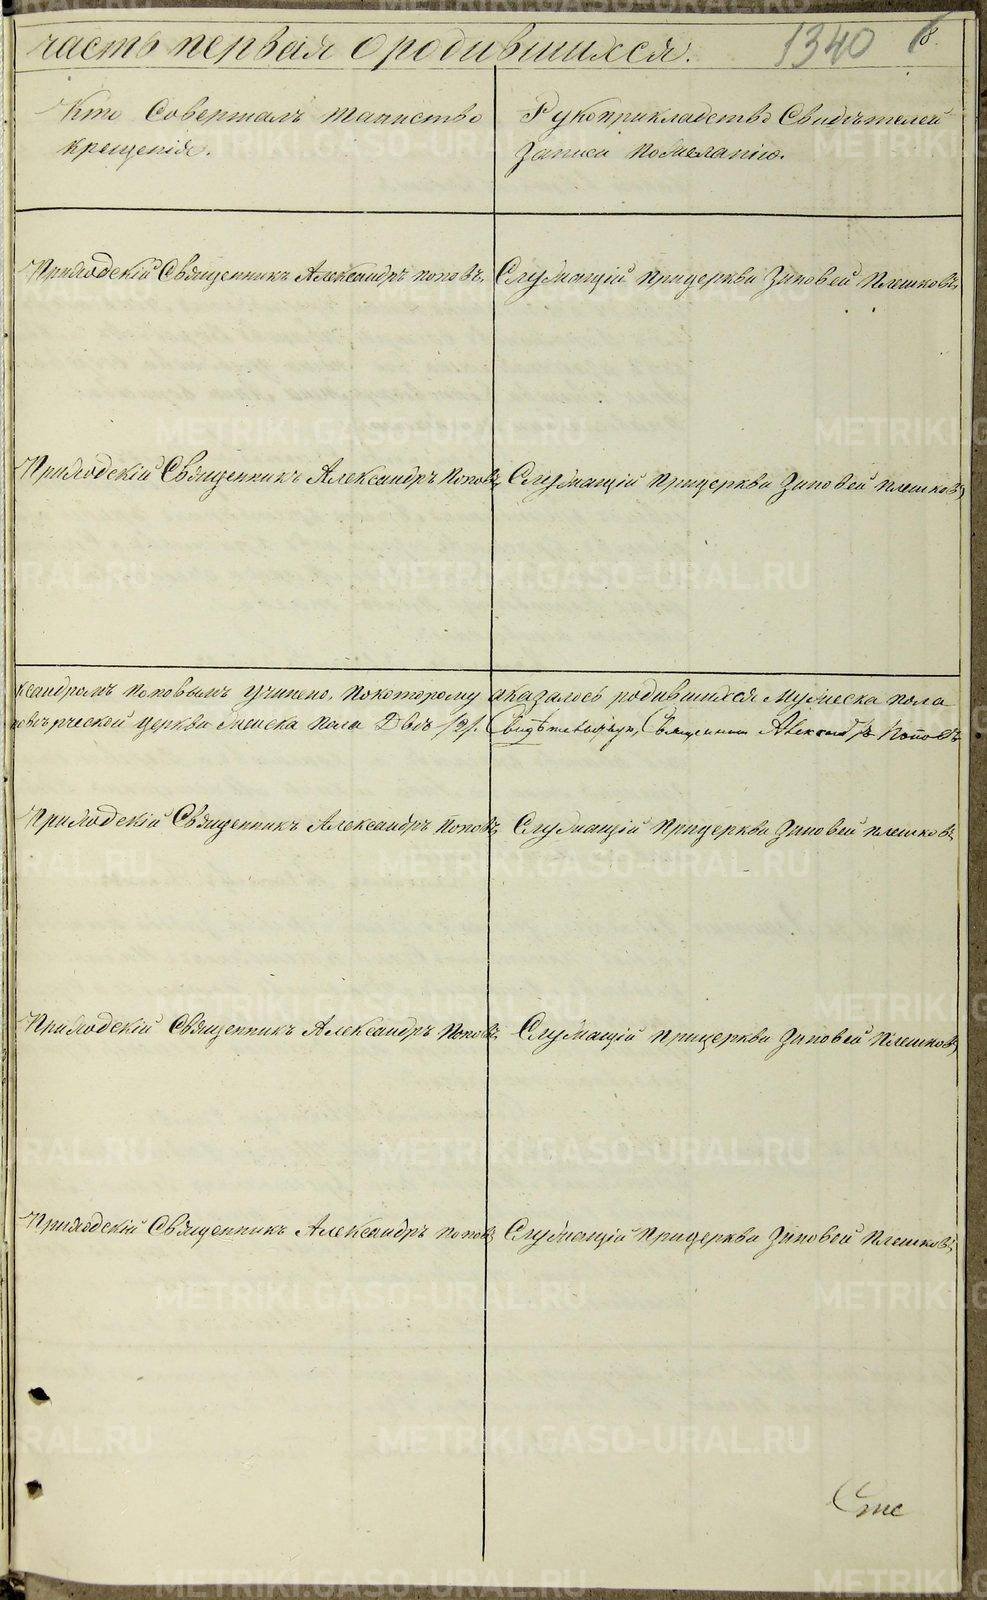 часть первая о родившихся. 1340 8.
Кто Совершалъ таинство Рукоприкладство Свидѣтелей
крещенія. записи пожеланію.
Приходскій Священникъ Александръ поповъ, Служащій прицеркви Зиновей Плешковъ,
Приходскій Священникъ Александръ Поповъ, Служащій прицеркви Зиновей плешковъ,
ксандромъ поповымъ учинено, покоторому аказалось родившихся мужеска пола
церкви женска пола Двѣ /2/. Священникъ Александръ Поповъ
Приходскій Священникъ Александръ Поповъ, Служащій прицеркви Зиновей плешковъ,
Приходскій Священникъ Александръ Поповъ, Служащій прицеркви Зиновей Плешковъ,
Приходскій Священникъ Александръ поповъ, Служащій прицеркви Зиновей Плешковъ,
METRIKI.GASO-URAL.RU